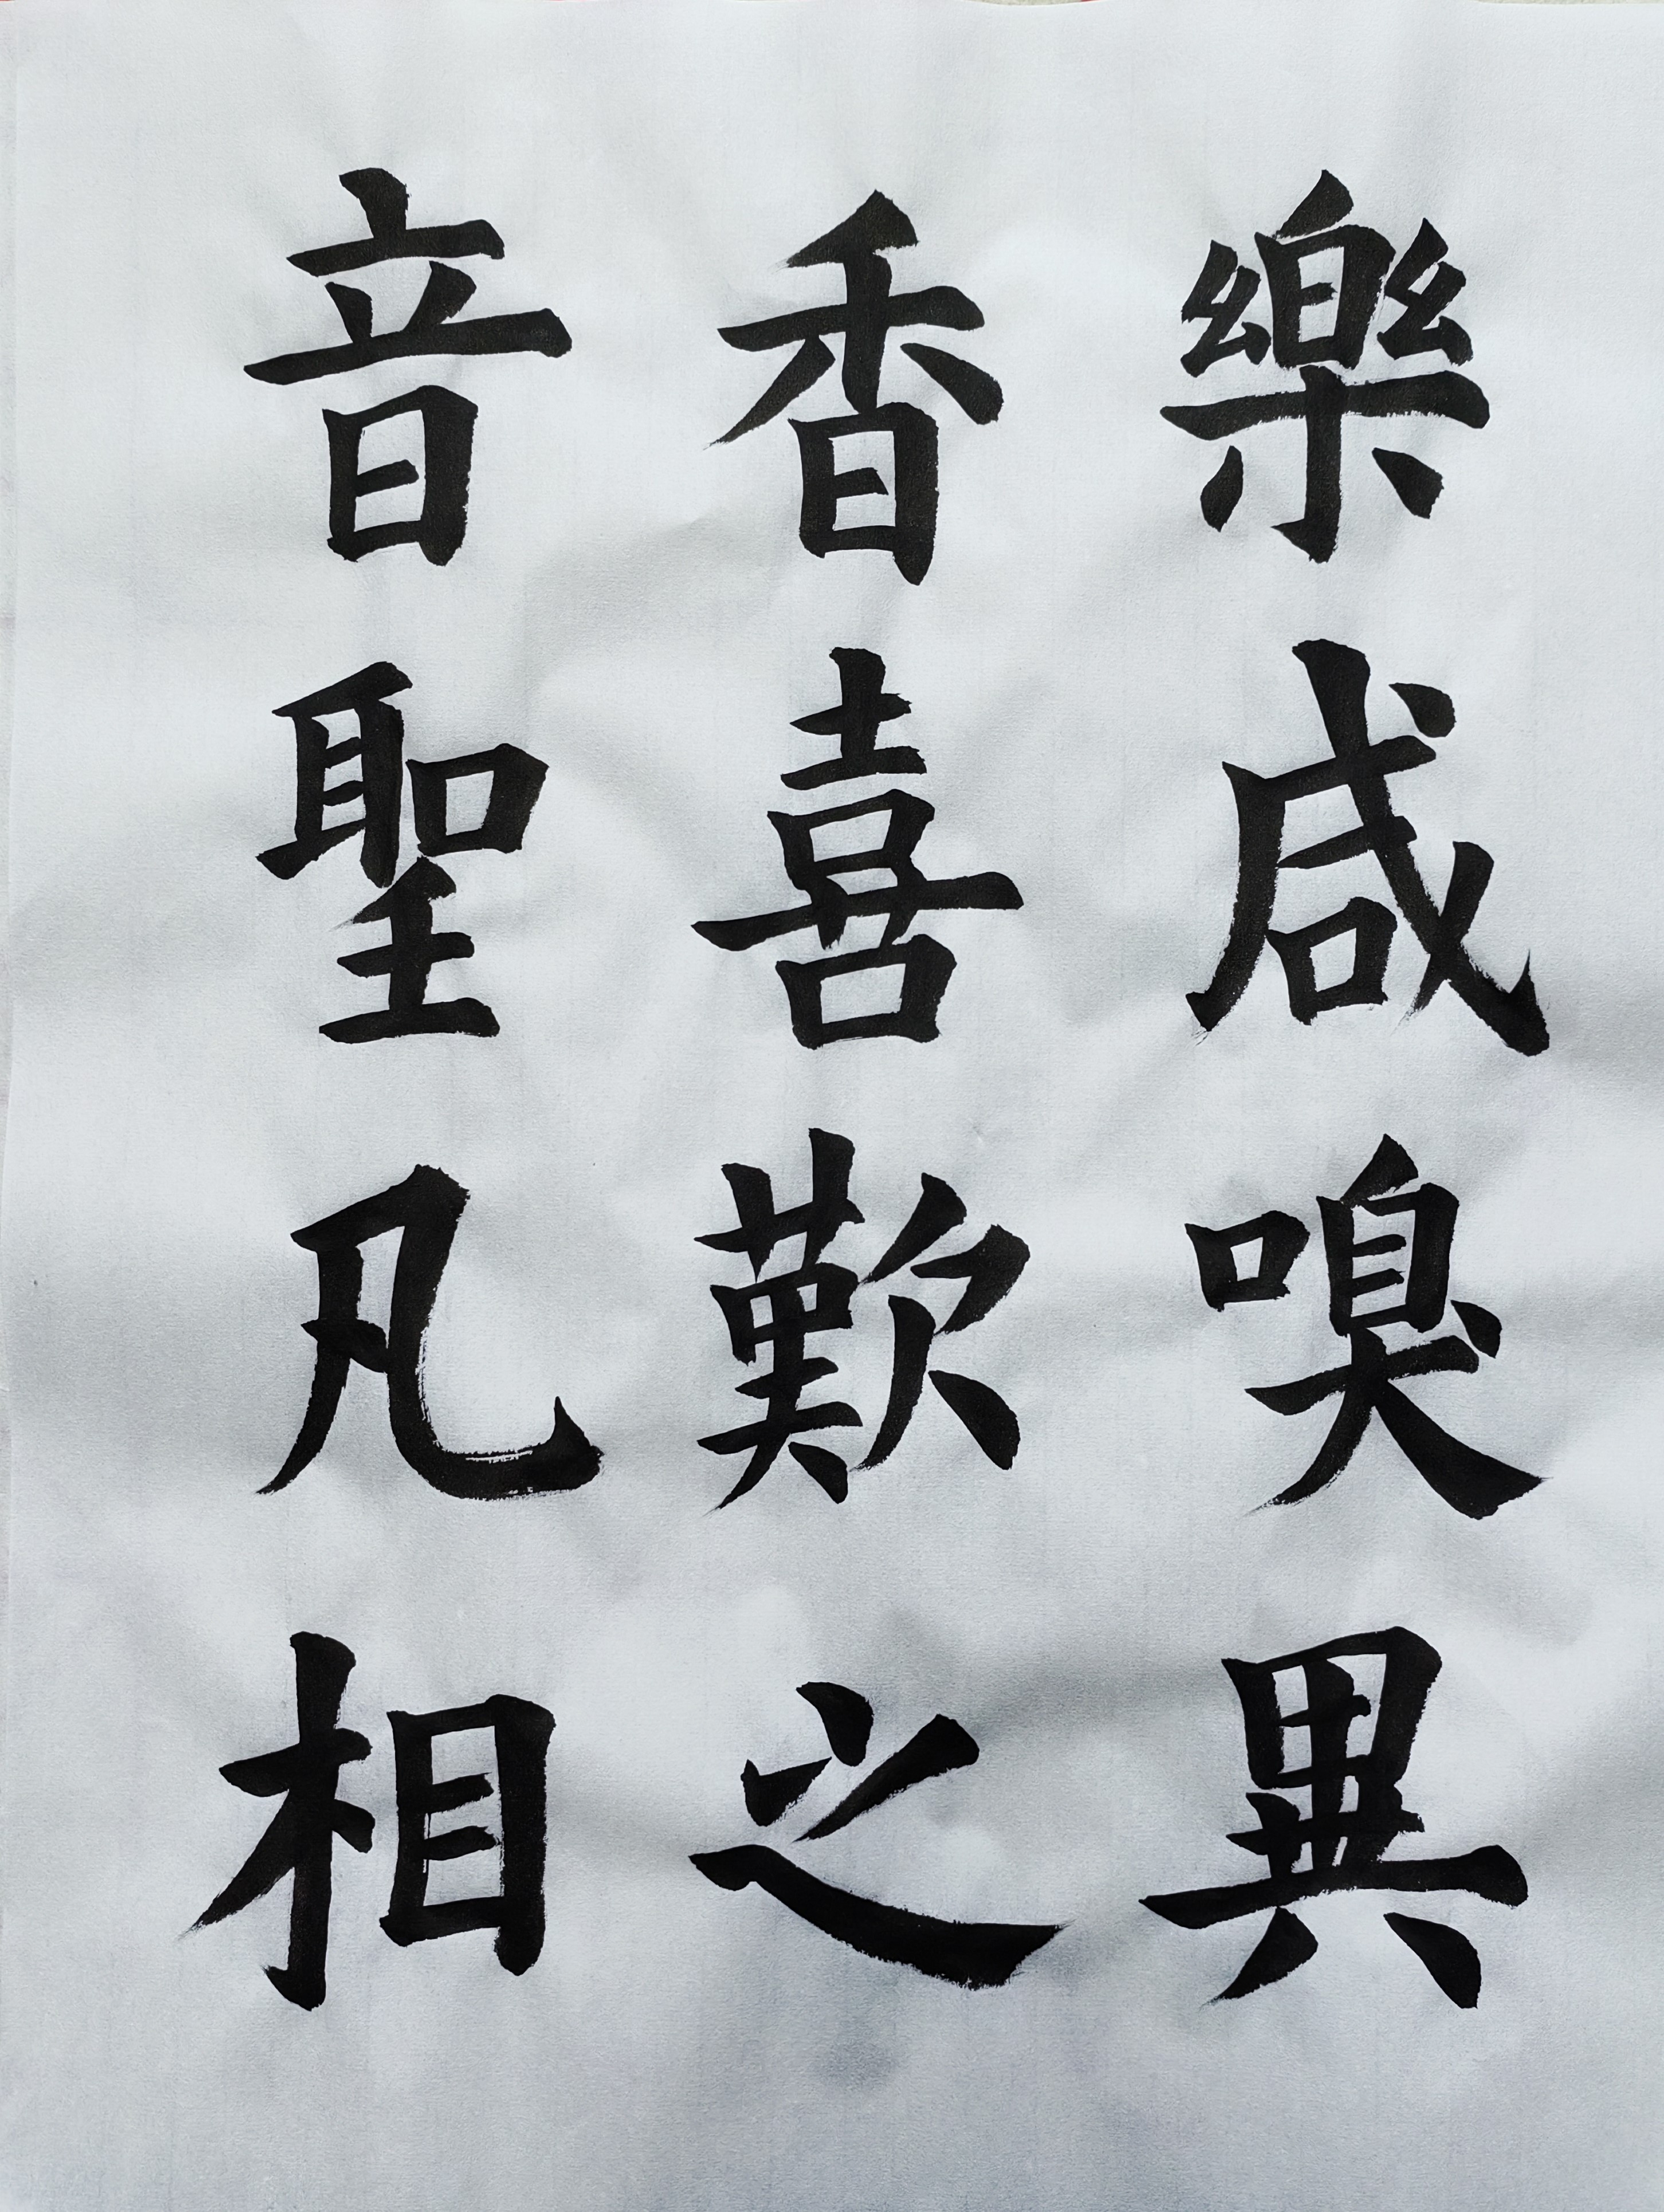 樂咸嗅異
香喜歎之
音聖凡相